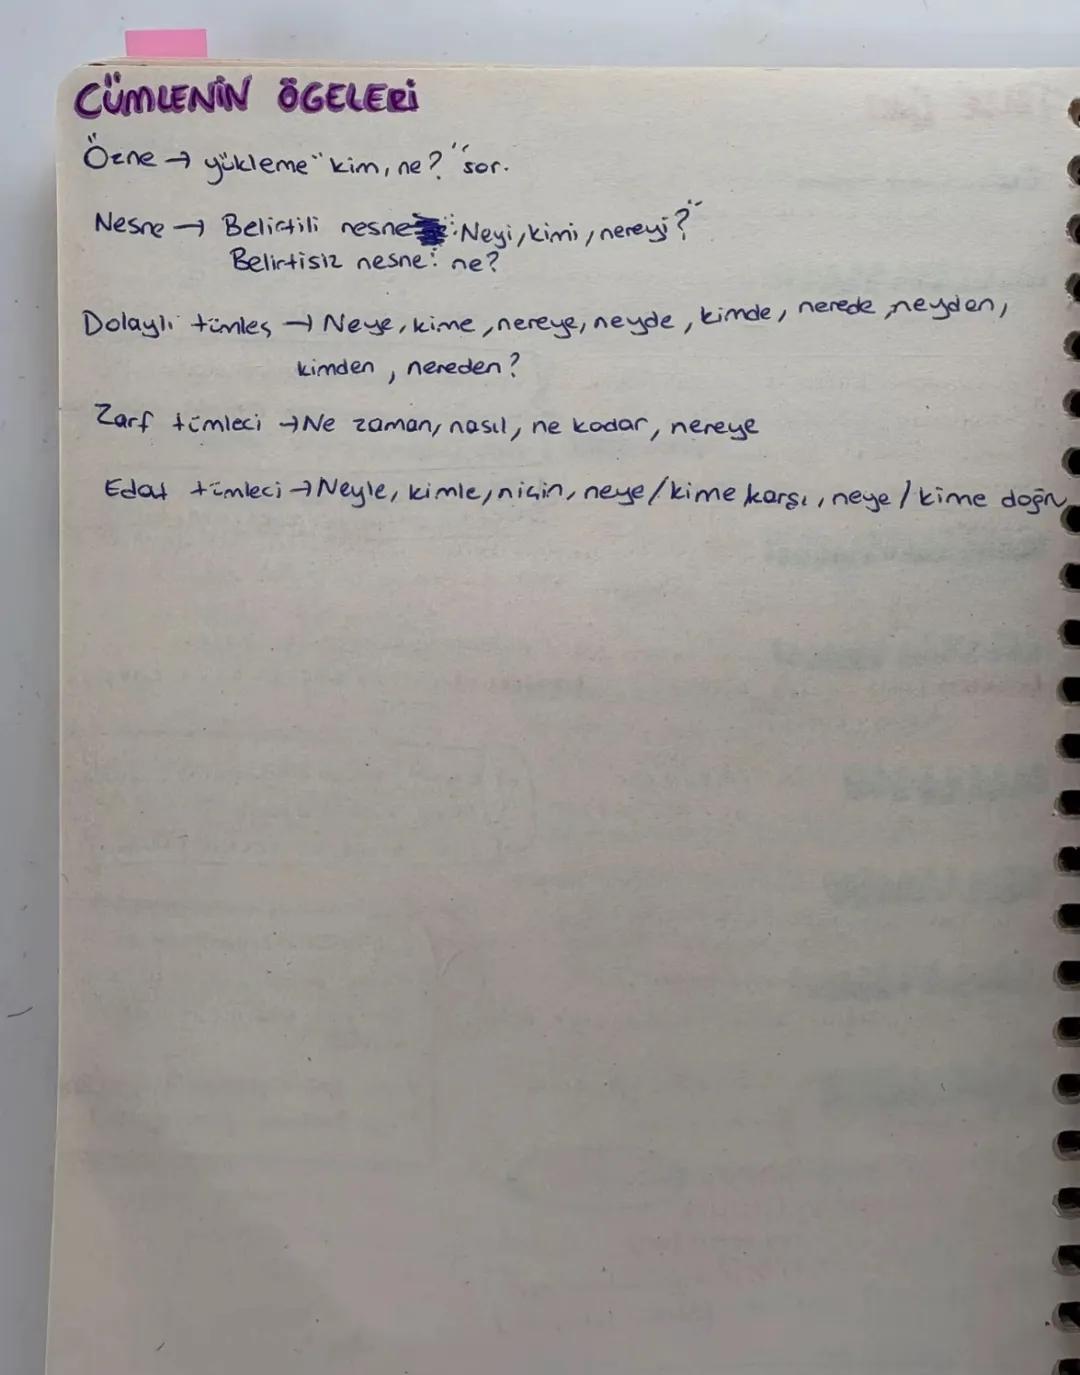 CÜMLENİN ÖGELERİ
Özne → yükleme "kim, ne?" sor.
Nesne → Belirtili nesne : Neyi, kimi, nereyi?
Belirtisiz nesne: ne?
Dolaylı tümleç → Neye, kime, nereye, neyde, kimde, nerede, neyden,
kimden, nereden?
Zarf tümleci → Ne zaman, nasıl, ne kadar, nereye
Edat tümleci → Neyle, kimle, niçin, neye/kime karşı, neye/kime doğru